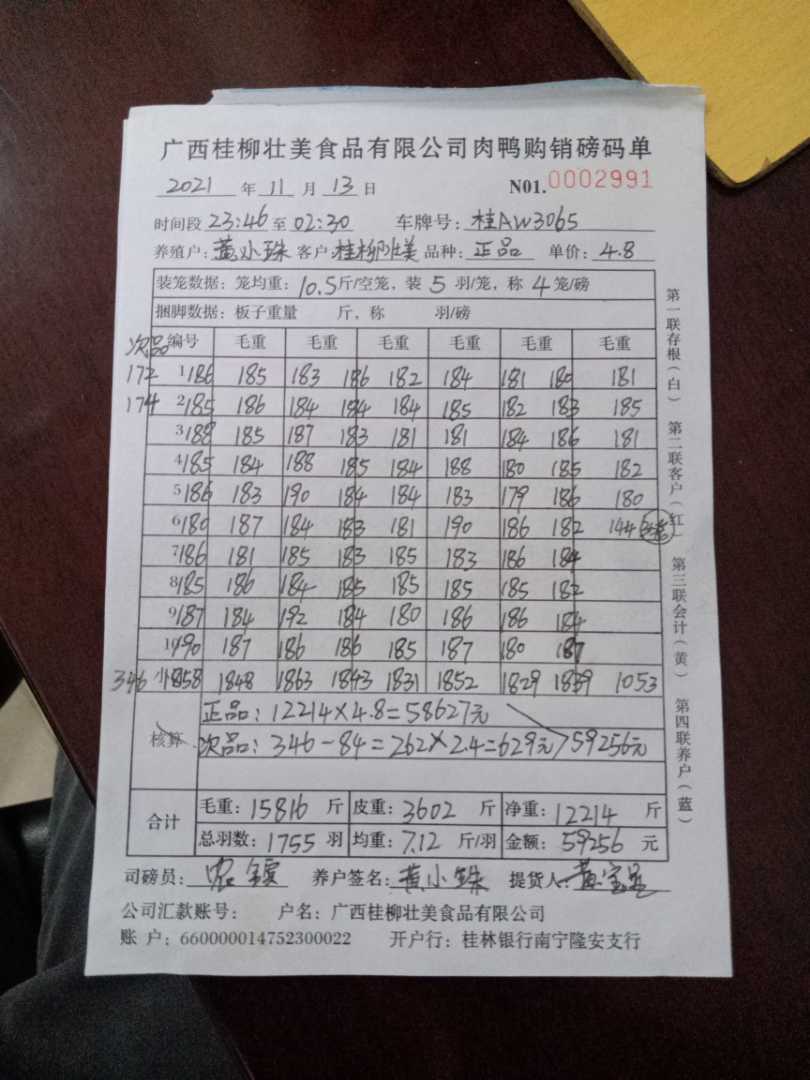 广西桂柳壮美食品有限公司肉鸭购销磅码单
2021 年 11 月 13 日 N01.0002991
时间段 23:46 至 02:30 车牌号: 桂AW3065
养殖户: 黄小珠 客户: 桂柳壮美 品种: 正品 单价: 4.8
装笼数据: 笼均重: 10.5斤/空笼, 装 5 羽/笼, 称 4 笼/磅
捆脚数据: 板子重量 斤, 称 羽/磅
次品 编号 毛重 毛重 毛重 毛重 毛重 毛重
172 1 186 185 183 186 182 184 181 180 181
174 2 185 186 184 184 184 185 182 183 185
3 188 185 187 183 181 181 184 186 181
4 185 184 188 185 184 188 180 185 182
5 186 183 190 184 184 183 179 186 180
6 180 187 184 183 181 190 186 182 144
7 186 181 185 183 185 183 186 184
8 185 186 184 185 185 185 185 182
9 187 184 192 184 180 186 186 184
10 190 187 186 186 185 187 180 187
346 小 1858 1848 1863 1843 1831 1852 1829 1839 1053
核算
正品: 12214×4.8=58627元
次品: 346-84=262×2.4=629元 59256元
合计
毛重: 15816 斤 皮重: 3602 斤 净重: 12214 斤
总羽数: 1755 羽 均重: 7.12 斤/羽 金额: 59256 元
司磅员: 养户签名: 黄小珠 提货人:
公司汇款账号: 户名: 广西桂柳壮美食品有限公司
账 户: 660000014752300022 开户行: 桂林银行南宁隆安支行
第一联存根(白) 第二联客户(红) 第三联会计(黄) 第四联养户(蓝)